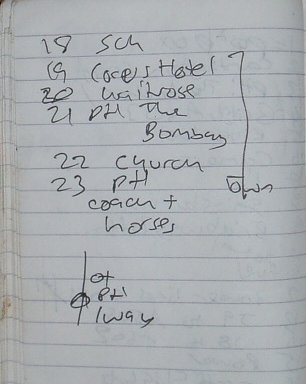 18 Sch
19 Coopers Hotel
20 Waitrose
21 PH The
Bombay
22 Church
23 PH
coach +
horses
PH
1way